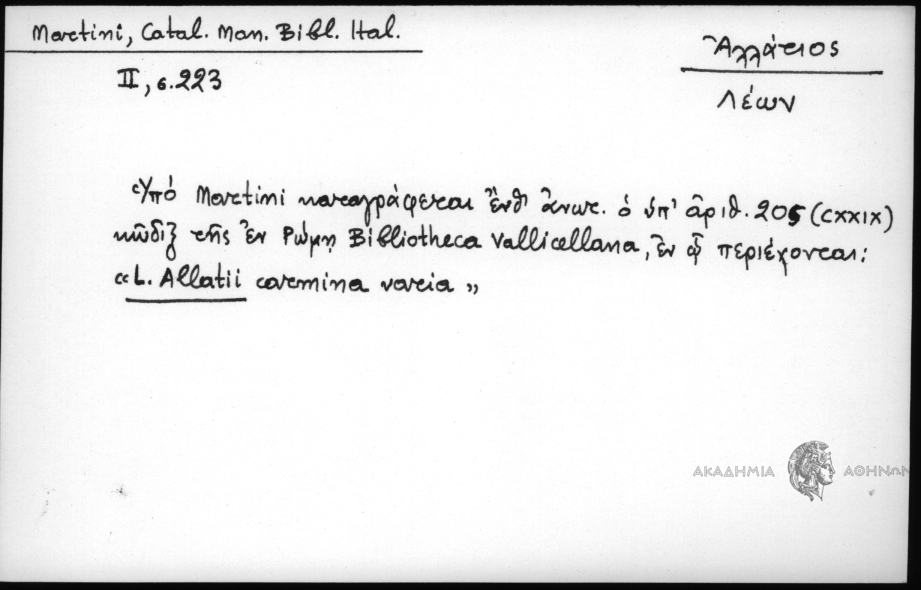 Martini, Catal. Man. Bibl. Ital.
II, σ. 223
Ἀλλάτιος
Λέων
Ὑπό Martini καταγράφεται ἔνθ' ἀνωτ. ὁ ὑπ' ἀριθ. 205 (CXXIX)
κῶδιξ τῆς ἐν Ρώμῃ Bibliotheca Vallicellana, ἐν ᾧ περιέχονται:
«L. Allatii carmina varia»
ΑΚΑΔΗΜΙΑ ΑΘΗΝΩΝ